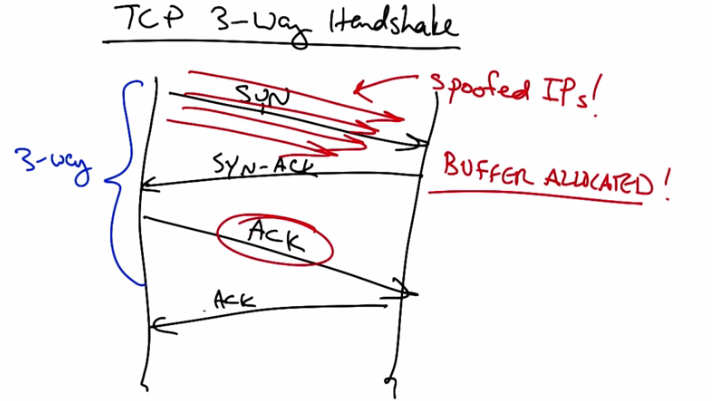 TCP 3-Way Handshake
SYN
spoofed IPs!
3-way
SYN-ACK
BUFFER ALLOCATED!
ACK
ACK